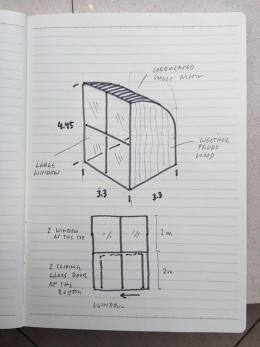 CORRUGATED
4.45
LARGE
WINDOW
WEATHER
PROOF
WOOD
3.3
3.3
2 WINDOW
AT THE TOP
1m
2 SLIDING
GLASS DOOR
AT THE
BOTTOM
2m
WINDOW